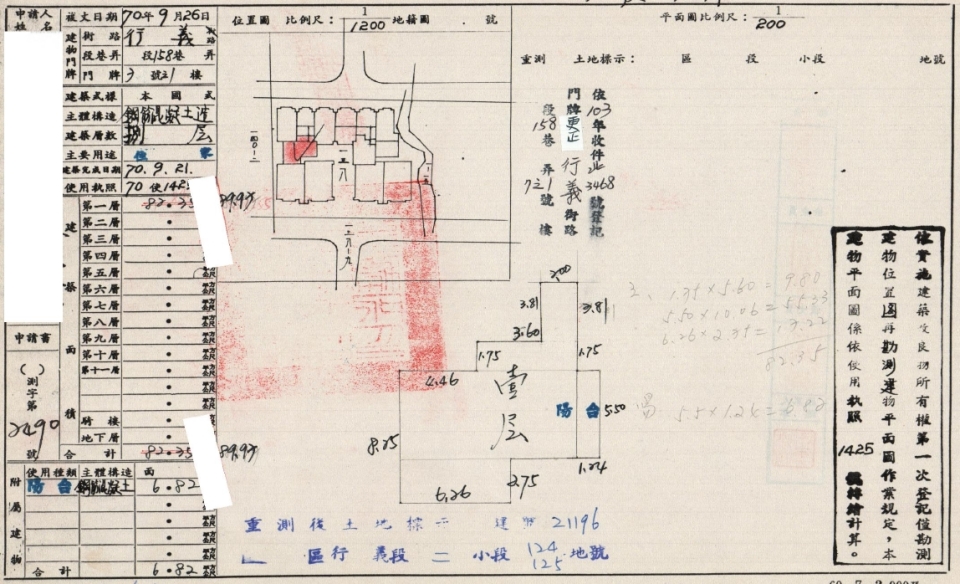 申請人
姓名
申請書
( )
測字第
2490
號
收文日期 70年9月26日
建物門牌
街路 行義 路
段巷弄 段158巷 弄
門牌 3號之1 樓
建築式樣 本國式
主體構造 鋼筋混凝土造
建築層數 捌层
主要用途 住家
建築完成日期 70.9.21.
使用執照 70使142
建築面積
第一層 82.35 89.93
第二層
第三層
第四層
第五層
第六層 平方公尺
第七層 平方公尺
第八層 平方公尺
第九層 平方公尺
第十層 平方公尺
第十一層 平方公尺
騎樓
地下層
合計 82.35 89.93
附屬建物
使用種類 主體構造 面
陽台 鋼筋混凝土 6.82
平方公尺
合計 6.82 平方公尺
位置圖 比例尺: 1/1200 地籍圖 號
一二八
一二八-九
平面圖比例尺: 1/200
重測 土地標示: 區 段 小段 地號
依103年收件 3468號登記
門牌更正 行義街路
段158巷 弄 7之1號 樓
2.00
3.81
3.81
3.60
1.75
1.75
4.46
壹层
陽台
5.50
8.25
1.24
2.75
6.26
1.75×5.60=9.80
5.50×10.06=55.33
6.26×2.75=17.22
82.35
5.5×1.24=6.82
重測後土地標示 建號21196
區行義段二小段 124 125 地號
依實施建築改良物所有權第一次登記位勘測
建物位置圖再勘測建物平面圖作業規定,本
建物平面圖係依使用執照 1425 號轉繪計算。